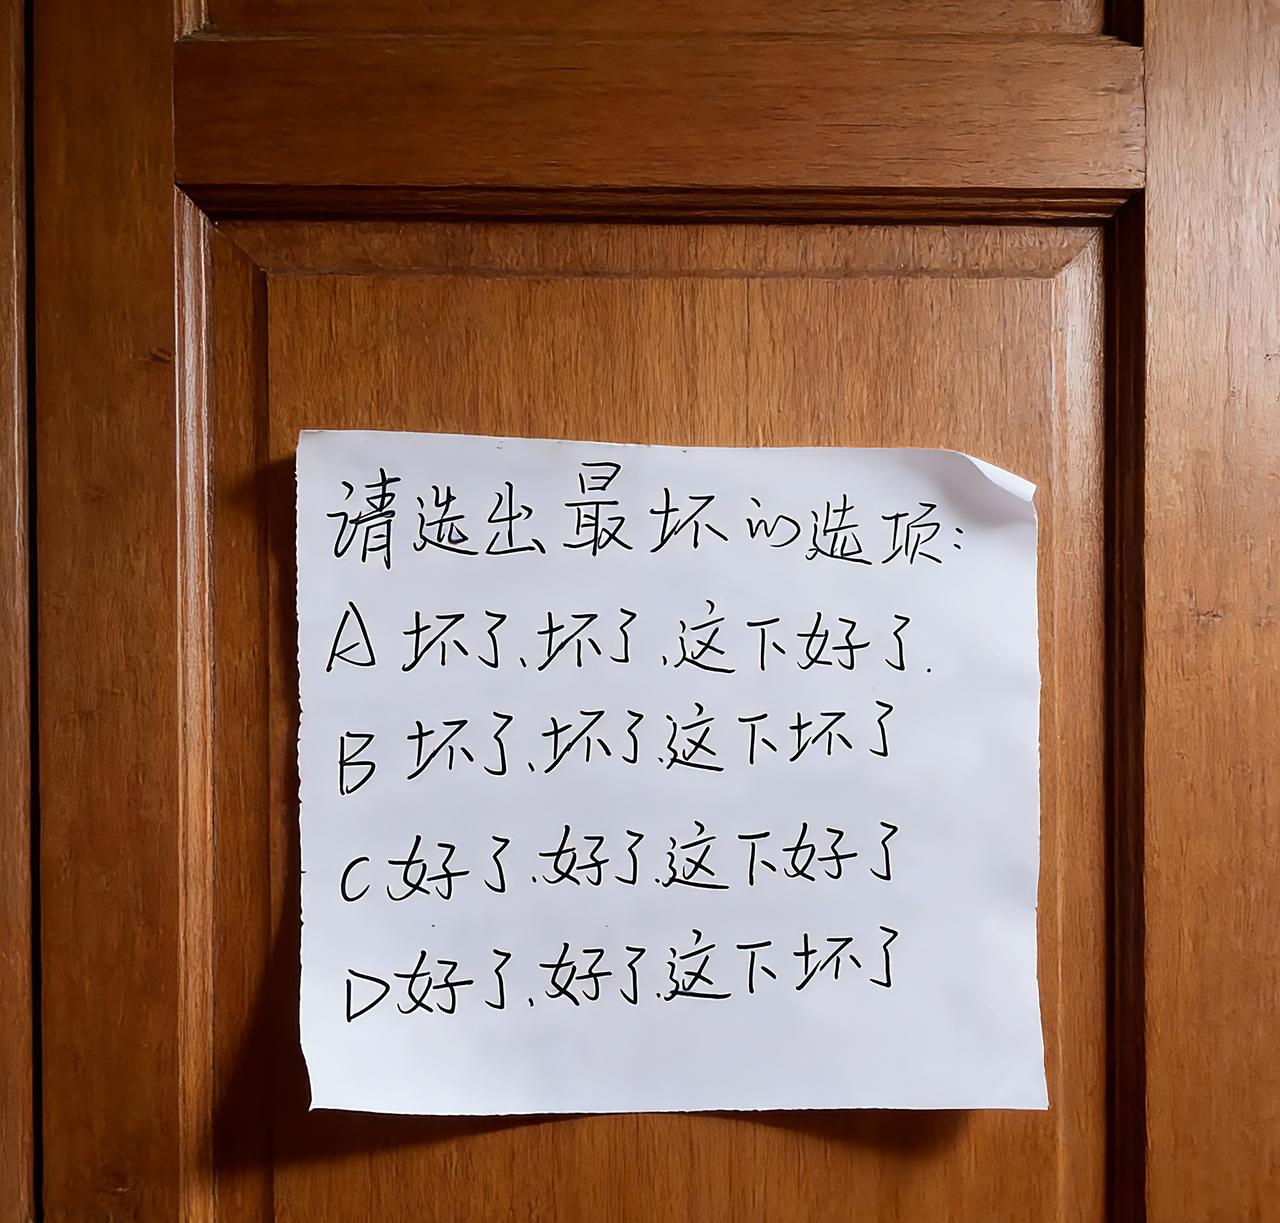 请选出最坏的选项:
A 坏了、坏了、这下好了.
B 坏了、坏了、这下坏了
C 好了、好了、这下好了
D 好了、好了、这下坏了